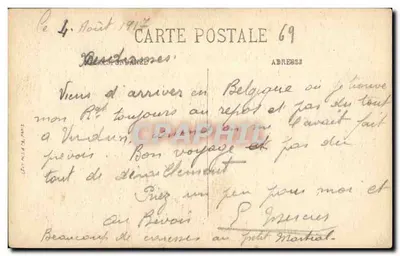 le 4 Août 1917
CARTE POSTALE 69
ADRESSE
Viens d'arriver en Belgique où je trouve
mon Bat toujours au repos et pas du tout
à Verdun l'avait fait
prévoir. Bon voyage et pas du
tout de déraillement.
Priez un peu pour moi et
au Revoir
Beaucoup de caresses au petit Martial